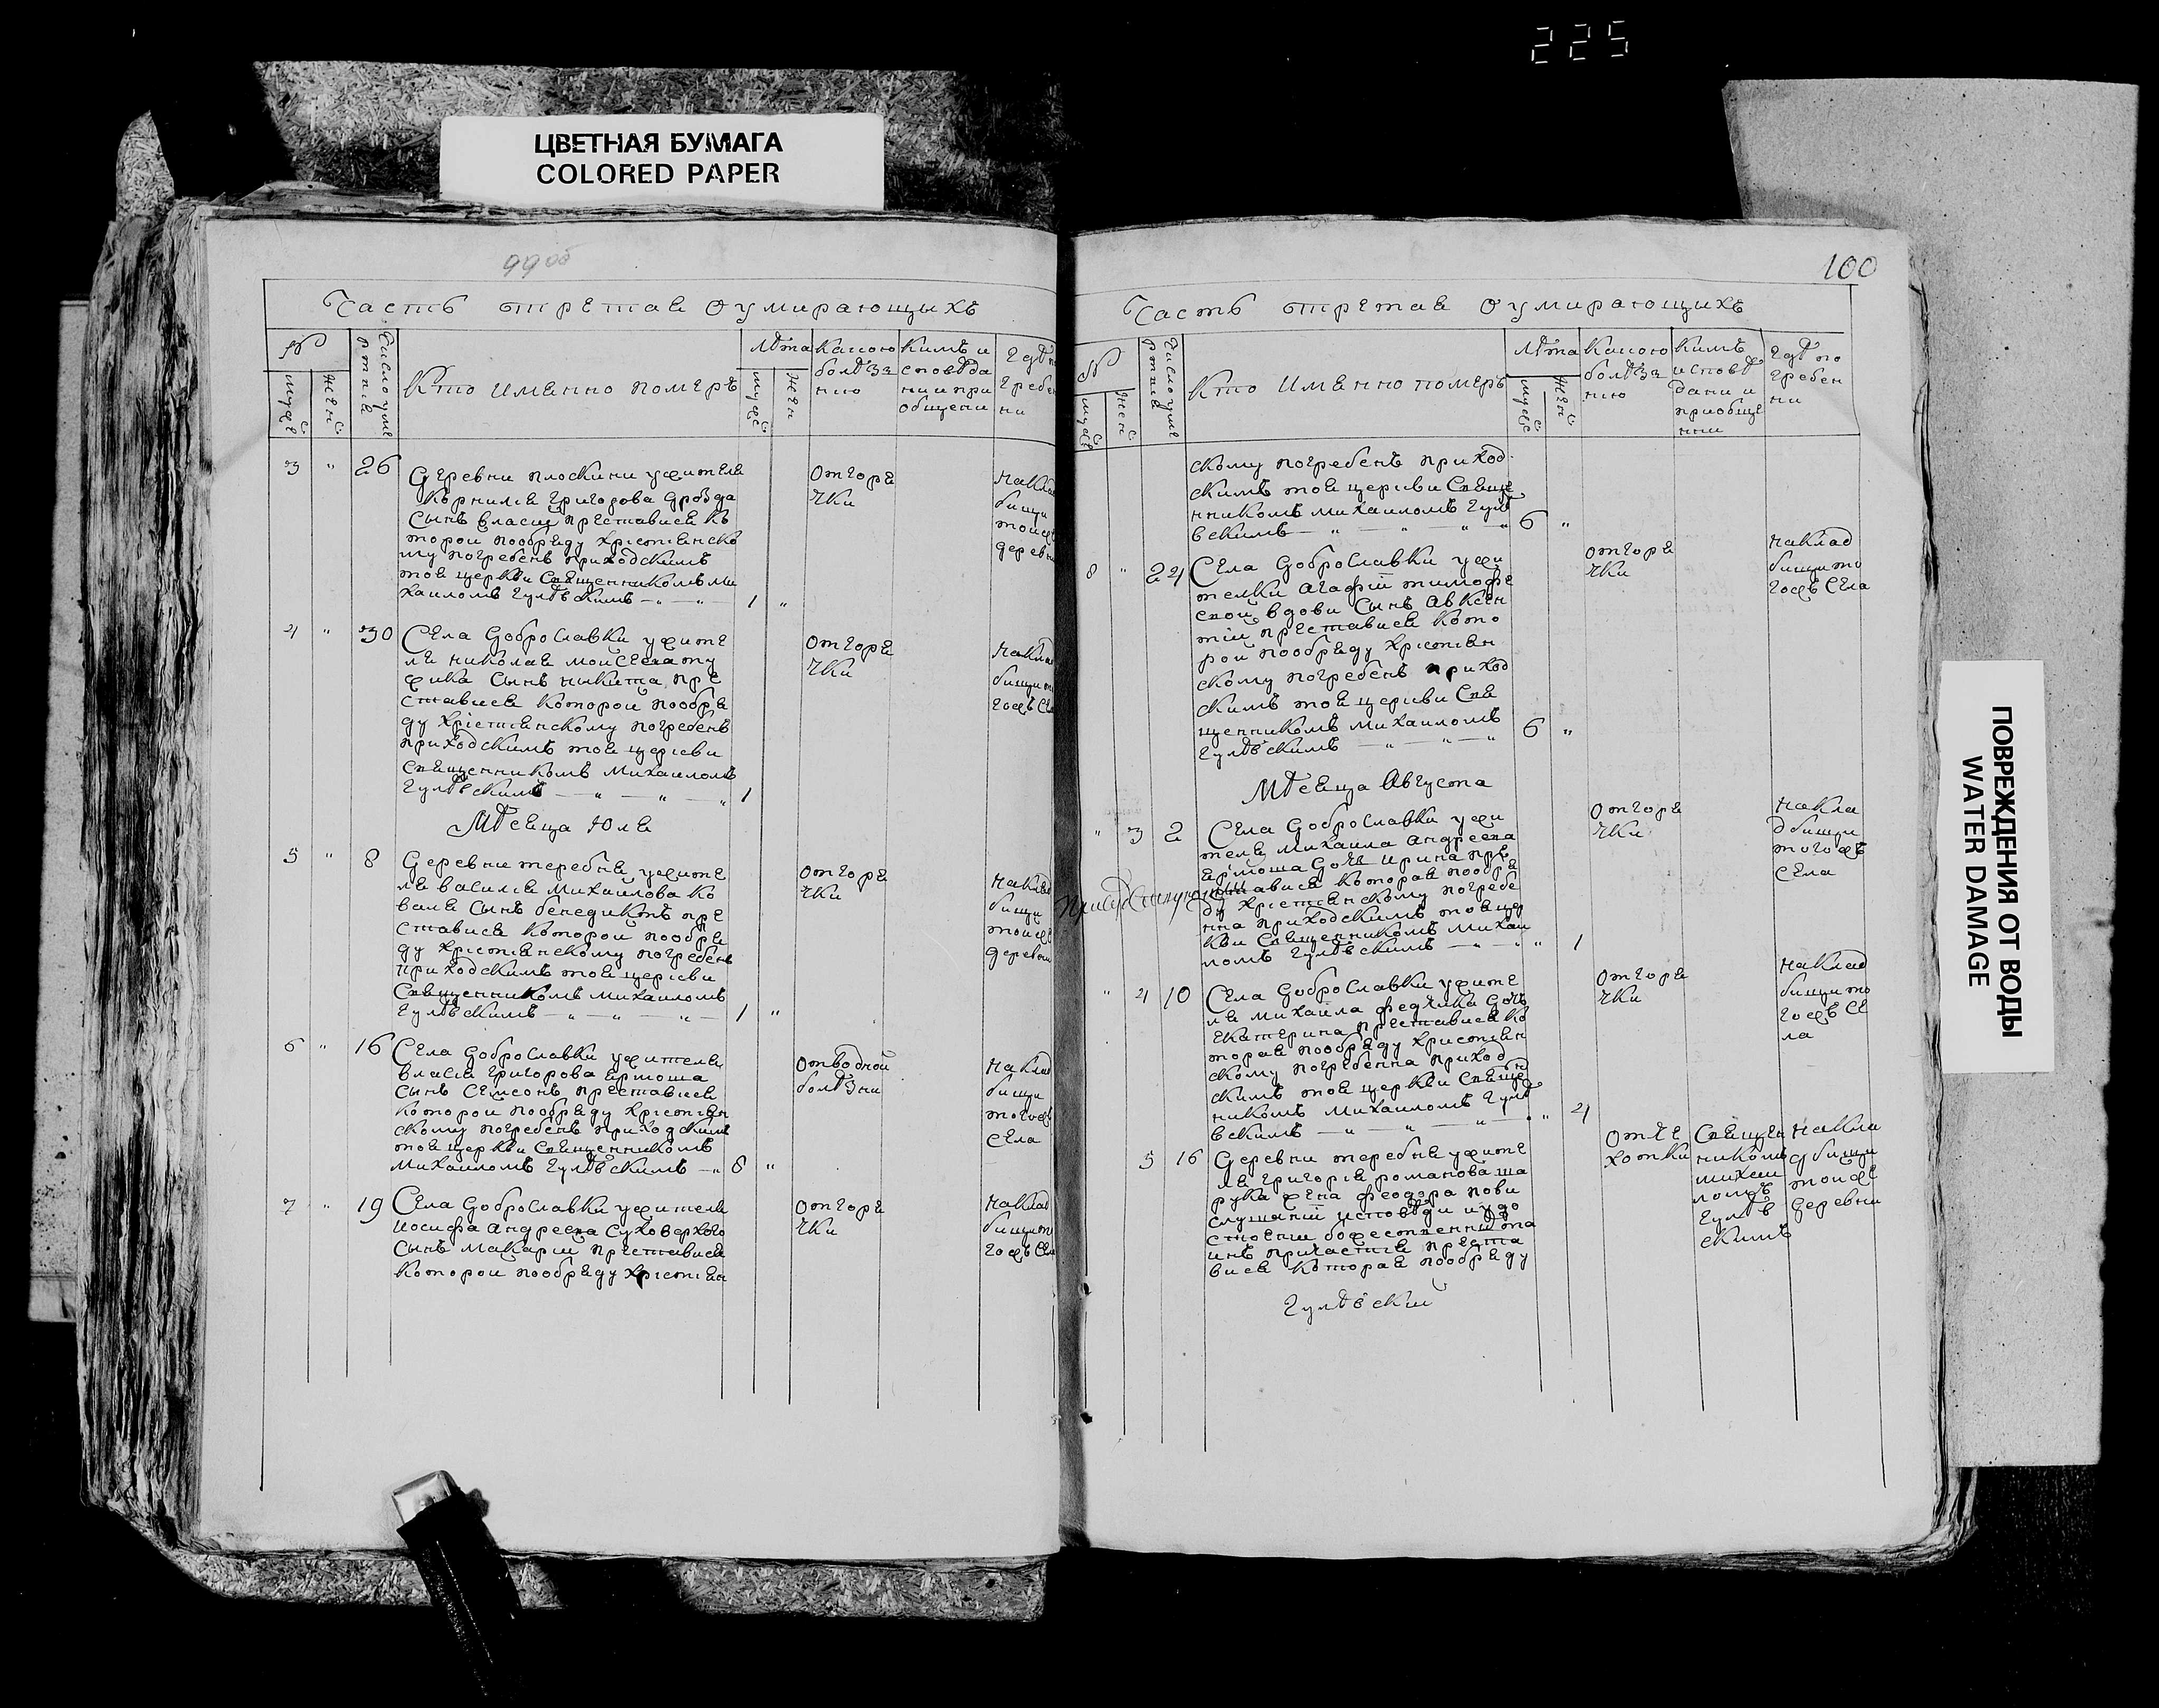 225
ЦВЕТНАЯ БУМАГА
COLORED PAPER
Часть третая оумирающыхъ
№
мужс
женс
Число уме
ртвів
Кто имянно померъ
Лѣта
мужс
жен
Какою
болѣз
нию
Кимъ и
сповѣда
ни и при
общени
Гдѣ п
гребен
ни
3 " 26
Деревни плоскини ужителя
Корнилія Григорова дрозда
Сынъ власи преставися ко
торои пообряду христіанско
му погребенъ приходскимъ
тоя церкви Священникомъ Ми
хаиломъ Гулѣвскимъ — " — " 1 "
Отгоря
чки
Наклад
бищи
тоейжъ
деревни
4 " 30
Села Доброславки ужите
ля николая моисеева ту
сынъ никита пре
ставися которои пообря
ду христіанскому погребенъ
приходскимъ тоя церкви
Священникомъ Михаиломъ
Гулѣвскимъ — " — " — " 1
Отгоря
чки
Наклад
бищи то
гожъ Се
Мѣсяца Юля
5 " 8
Деревни теребня ужите
ля василія Михаилова Ко
валя Сынъ бенедиктъ пре
ставися которои пообря
ду христіанскому погребенъ
приходскимъ тоя церкви
Священникомъ Михаиломъ
Гулѣвскимъ — " — " — " — 1 "
Отгоря
чки
Наклад
бищи
тоейжъ
деревни
6 " 16
Села Доброславки ужителя
власія Григорова Ярмоша
Сынъ Семсонъ преставися
которои пообряду христіан
скому погребенъ приходскимъ
тоя церкви Священникомъ
Михаиломъ Гулѣвскимъ — " 6 "
Отводной
болѣзни
Наклад
бищи
тогожъ
села
7 " 19
Села Доброславки ужителя
Иосифа Андреева Суховерхого
Сынъ Макарии преставися
которои пообряду христіан
Отгоря
чки
Наклад
бищи то
гожъ Сел
100
Часть третая оумирающихъ
№
мужс
женс
Число уме
ртвів
Кто имянно померъ
Лѣта
мужс
женс
Какою
болѣз
нию
Кимъ
исповѣ
дани и
приобще
нни
Гдѣ по
гребен
ни
скому погребенъ приход
скимъ тоя церкви Свяще
нникомъ Михаиломъ Гулѣ
вскимъ — " — " — " — " 6 "
8 " 24
Села Доброславки ужи
телки Агафіи тимофе
евой вдови Сынъ Авксен
тіи преставися кото
рои пообряду христіан
скому погребенъ приход
скимъ тоя церкви Свя
щенникомъ Михаиломъ
Гулѣвскимъ — " — " — " 6 "
Отгоря
чки
Наклад
бищи то
гожъ Села
Мѣсяца Августа
" 3 2
Села Доброславки ужи
теля Михаила Андреева
Ярмоша Дочь Ирина пре
ставися которая пообря
ду христіанскому погребе
нна приходскимъ тоя цер
кви Священникомъ Михаи
ломъ Гулѣвскимъ — " — " " 1
Отгоря
чки
Накла
дбищи
тогожъ
села
" 4 10
Села Доброславки ужите
ля Михаила Дочь
Екатерина преставися ко
торая пообряду христіан
скому погребенна приход
скимъ тоя церкви Священ
никомъ Михаиломъ Гулѣ
вскимъ — " — " — " — " " 4
Отгоря
чки
Наклад
бищи то
гожъ Се
ла
5 16
Деревни теребня ужите
ля Григорія романова ша
рука жена феодора пови
слушаніи исповѣди иудо
стоении божественныхъ та
инъ причастія преста
вися которая пообряду
Отче
хотки
Священ
никомъ
михаи
ломъ
Гулѣв
скимъ
Накла
дбищи
тоиже
деревни
Гулѣвскии
ПОВРЕЖДЕНИЯ ОТ ВОДЫ
WATER DAMAGE